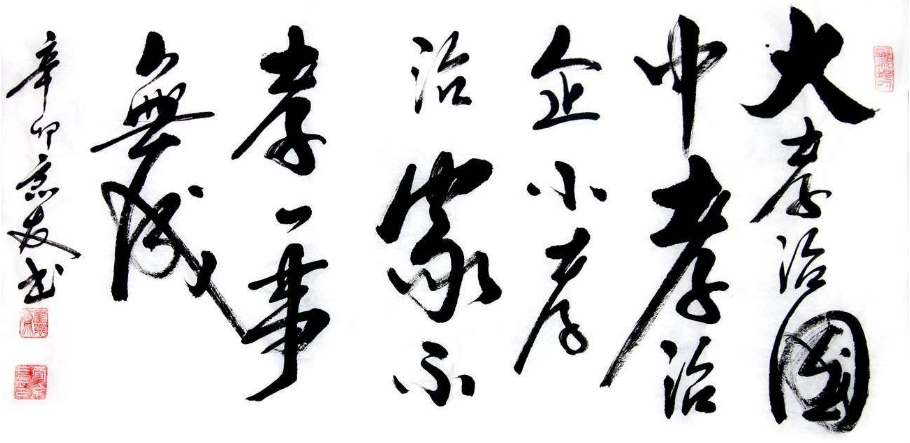 大孝治國
中孝治
企小孝
治家不
孝一事
無成
辛卯京友书